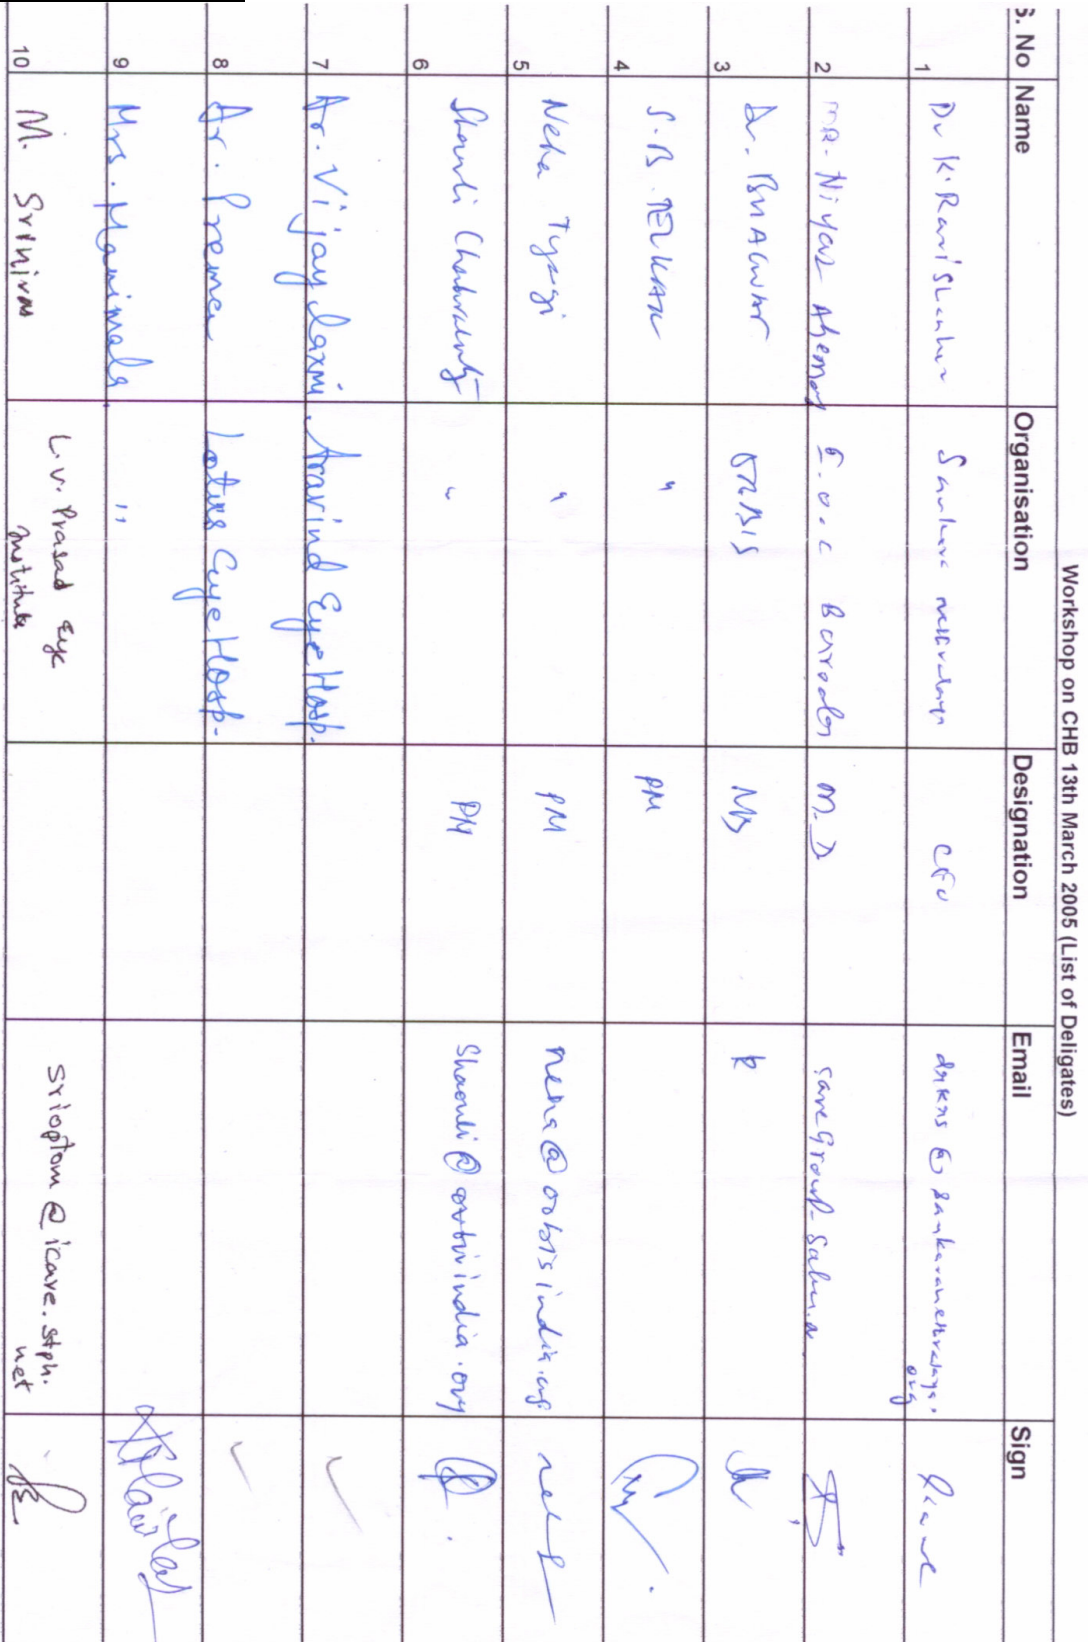 Workshop on CHB 13th March 2005 (List of Deligates)
S. No Name Organisation Designation Email Sign
1 Dr K. Ravi Shankar Sankara CFO
2 MR. Niyaz Ahemad E.O.C Baroda M.D
3 Dr. BHAGWAT ORBIS
4 S.B. " PM
5 Neha Tyagi " PM neha@orbisindia.org neh
6 Shaouli Chakravarty " PM Shaouli@orbisindia.org
7 Dr. Vijaylaxmi. Aravind Eye Hosp.
8 Dr. Prema Lotus Eye Hosp.
9 Mrs. Manimala "
10 M. Srinivas L.V. Prasad Eye Institute srioptom@icare.stph.net